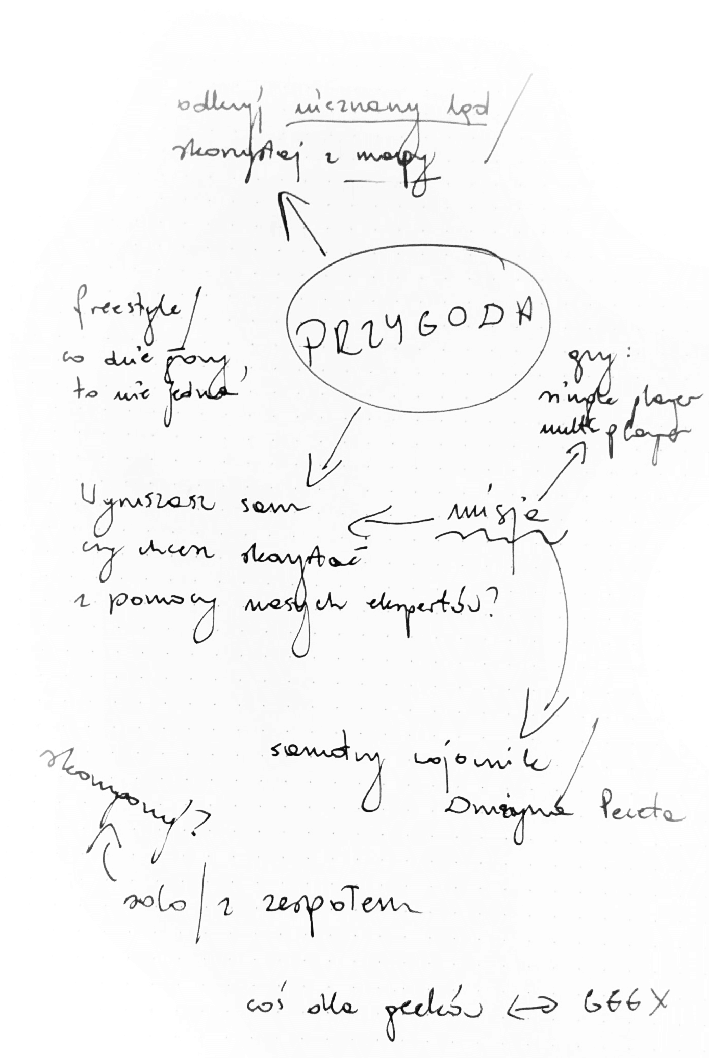 odkryj nieznany ląd /
skorzystaj z mapy
PRZYGODA
freestyle /
co dwie głowy,
to nie jedna
gry:
single player
multi player
Wyruszasz sam
misje
czy chcesz skorzystać
z pomocy naszych ekspertów?
samotny wojownik /
Drużyna
solo / z zespołem
coś dla geeków ↔ GEEX